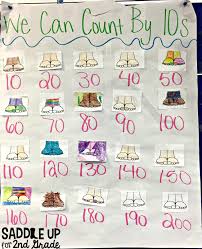 We Can Count By 10s
10 20 30 40 50
60 70 80 90 100
110 120 130 140 150
160 170 180 190 200
SADDLE UP
for 2nd Grade